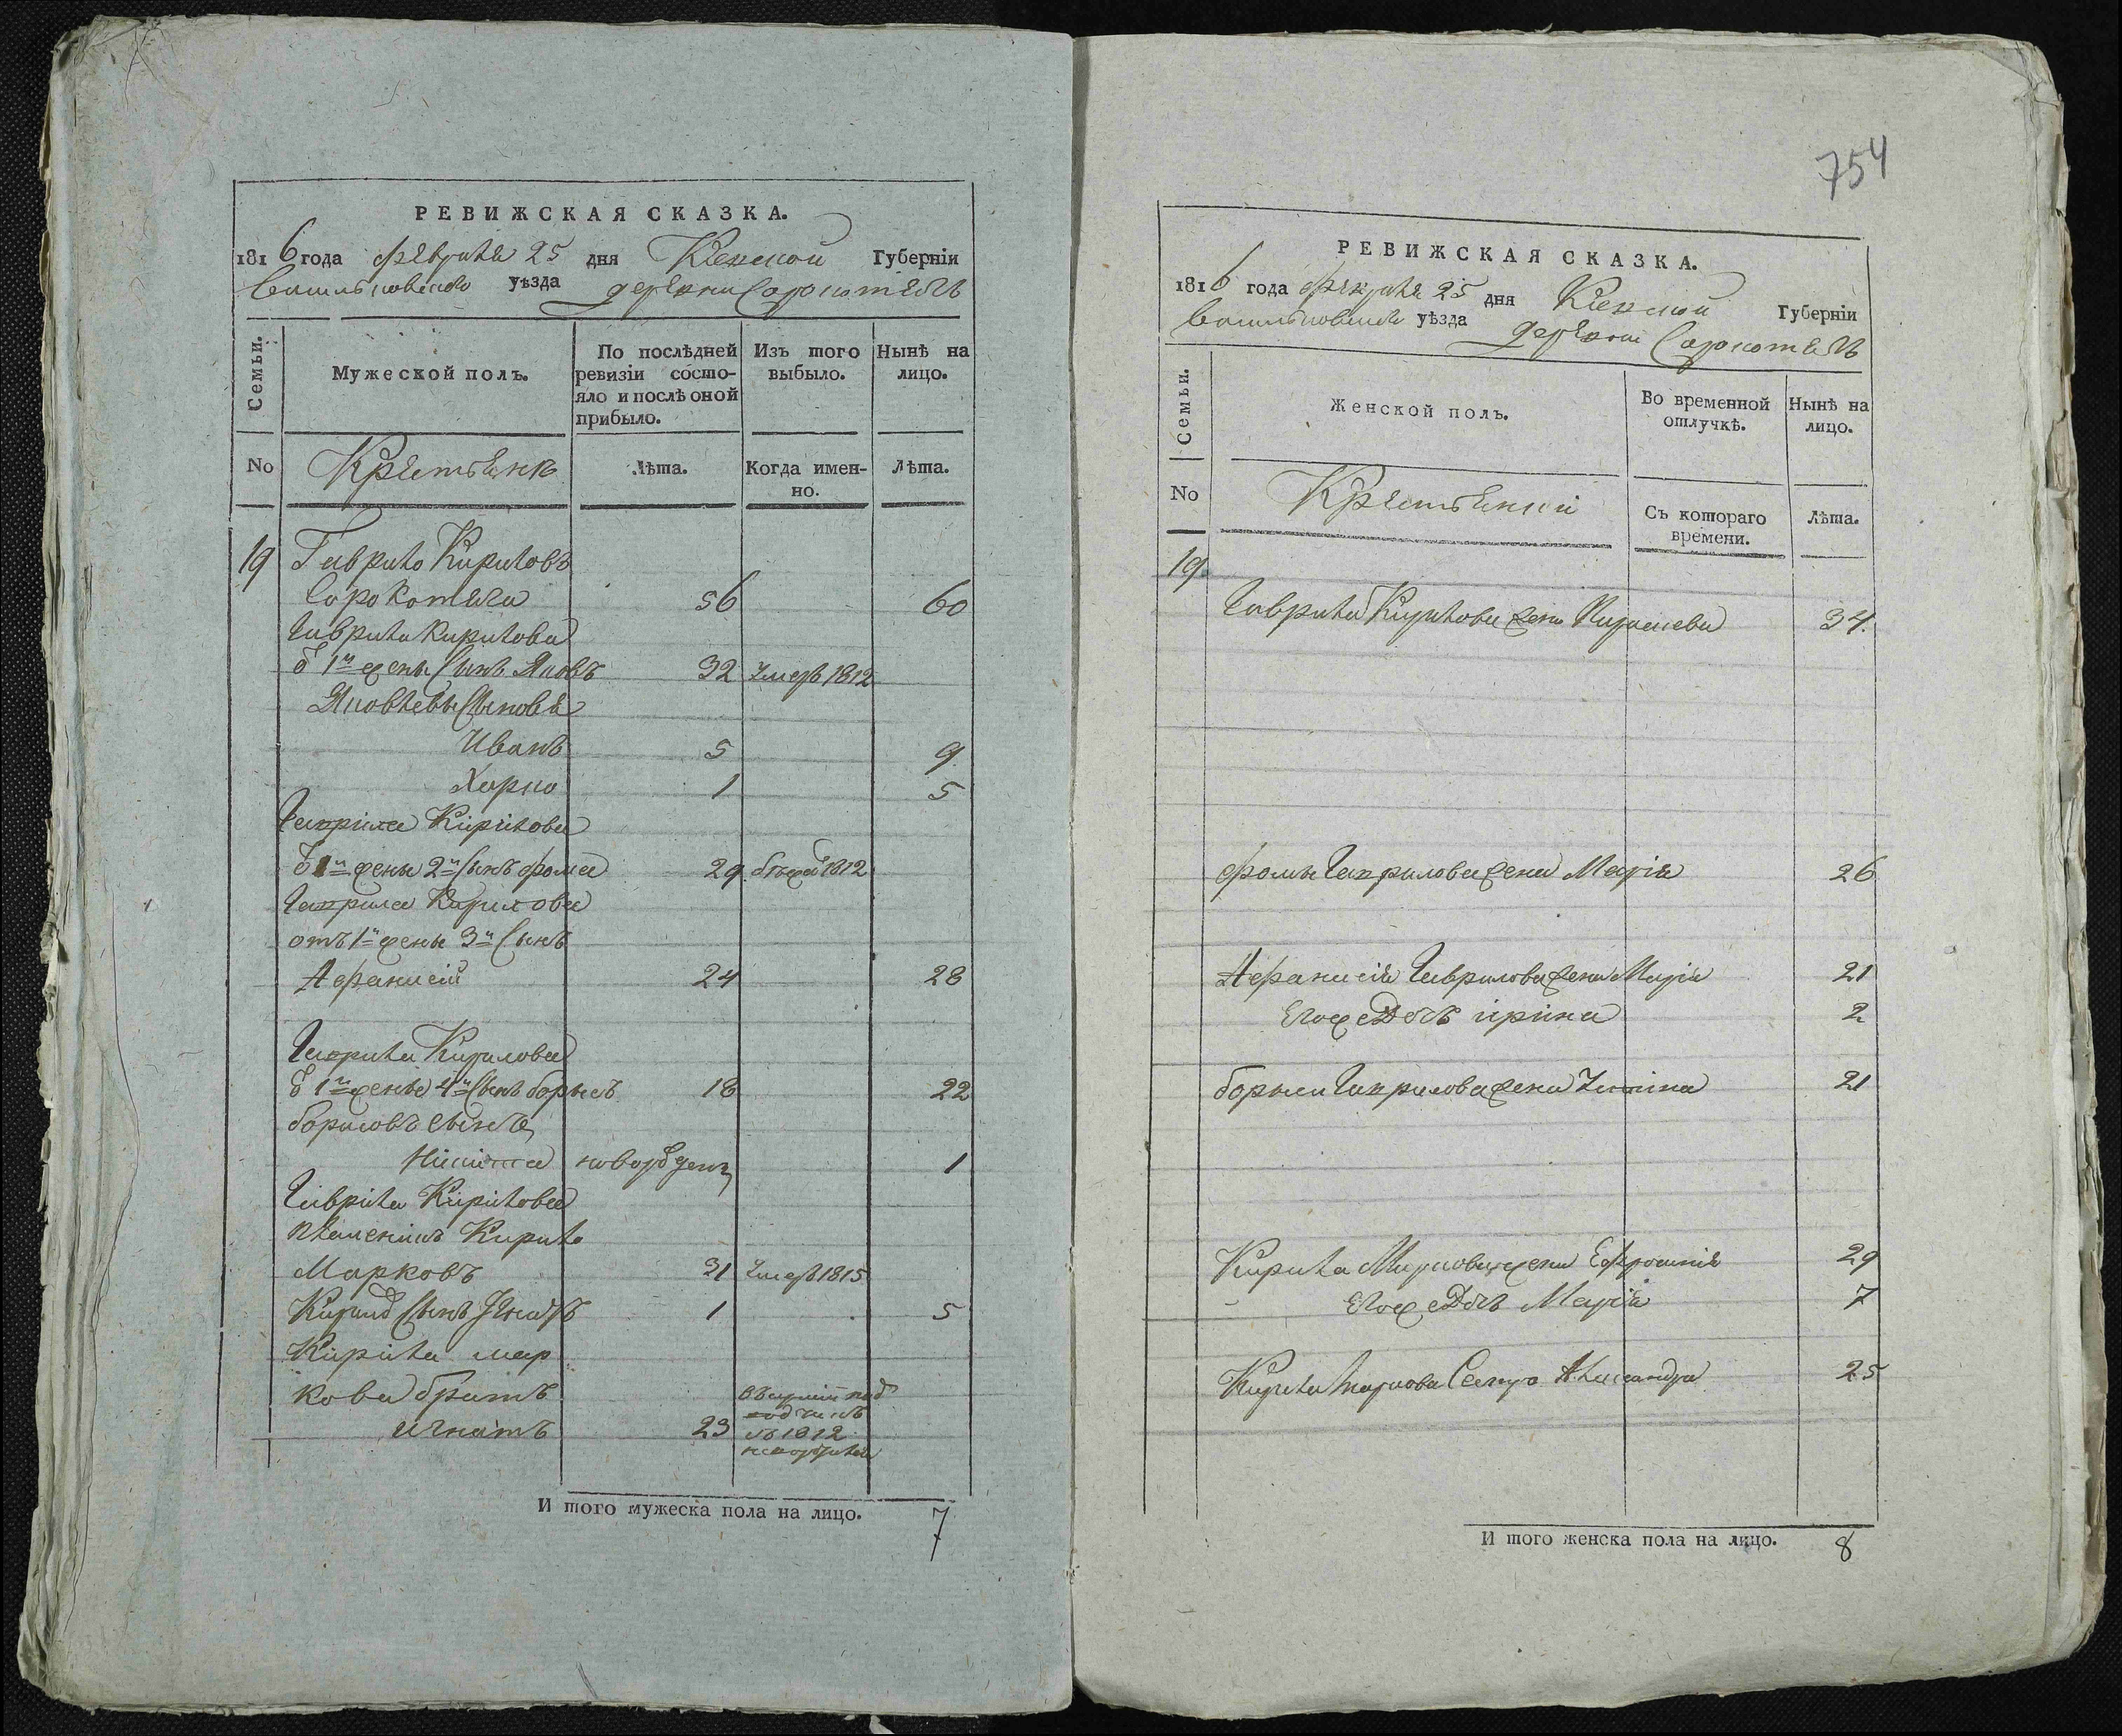 РЕВИЖСКАЯ СКАЗКА.
1816 года февраля 25 дня Кіевской Губерніи
Васильковского уѣзда деревни Сорокотягъ
Семьи.
Мужеской полъ.
По послѣдней ревизіи состояло и послѣ оной прибыло.
Изъ того выбыло.
Нынѣ на лицо.
No
Крестьянъ
Лѣта.
Когда именно.
Лѣта.
19 Гаврило Кириловъ
Сорокотяга 56 60
Гаврила Кирилова
1й жены Сынъ Яковъ 32 Умеръ 1812
Яковлевы Сыновя
Иванъ 5 9
Харко 1 5
Гаврила Кирилова
1й жены 2й Сынъ Фома 29 1812
Гаврила Кирилова
отъ 1й жены 3й Сынъ
Афанисій 24 28
Гаврила Кирилова
1й жены 4й Сынъ Борысъ 18 22
Борисовъ сынъ
Нікита новорожденъ 1
Гаврила Кирилова
Племеникъ Кирило
Марковъ 31 Умеръ 1815
Кирила Сынъ Игнатъ 1 5
Кирила мар
кова братъ
Игнатъ 23 1812
И того мужеска пола на лицо. 7
754
РЕВИЖСКАЯ СКАЗКА.
1816 года февраля 25 дня Кіевской Губерніи
Васильковского уѣзда деревни Сорокотягъ
Семьи.
Женской полъ.
Во временной отлучкѣ.
Нынѣ на лицо.
No
Крестьянки
Съ котораго времени.
Лѣта.
19.
Гаврила Кирилова жена 34.
Фомы Гаврилова жена Марія 26
Афанисія Гаврилова жена Марія 21
Егожъ Дочъ ірина 2
Борыса Гаврилова жена 21
Кирила Маркова жена Ефросинія 29
Егоже Дочъ Марія 7
Кирила Маркова Сестра Александра 25
И того женска пола на лицо. 8